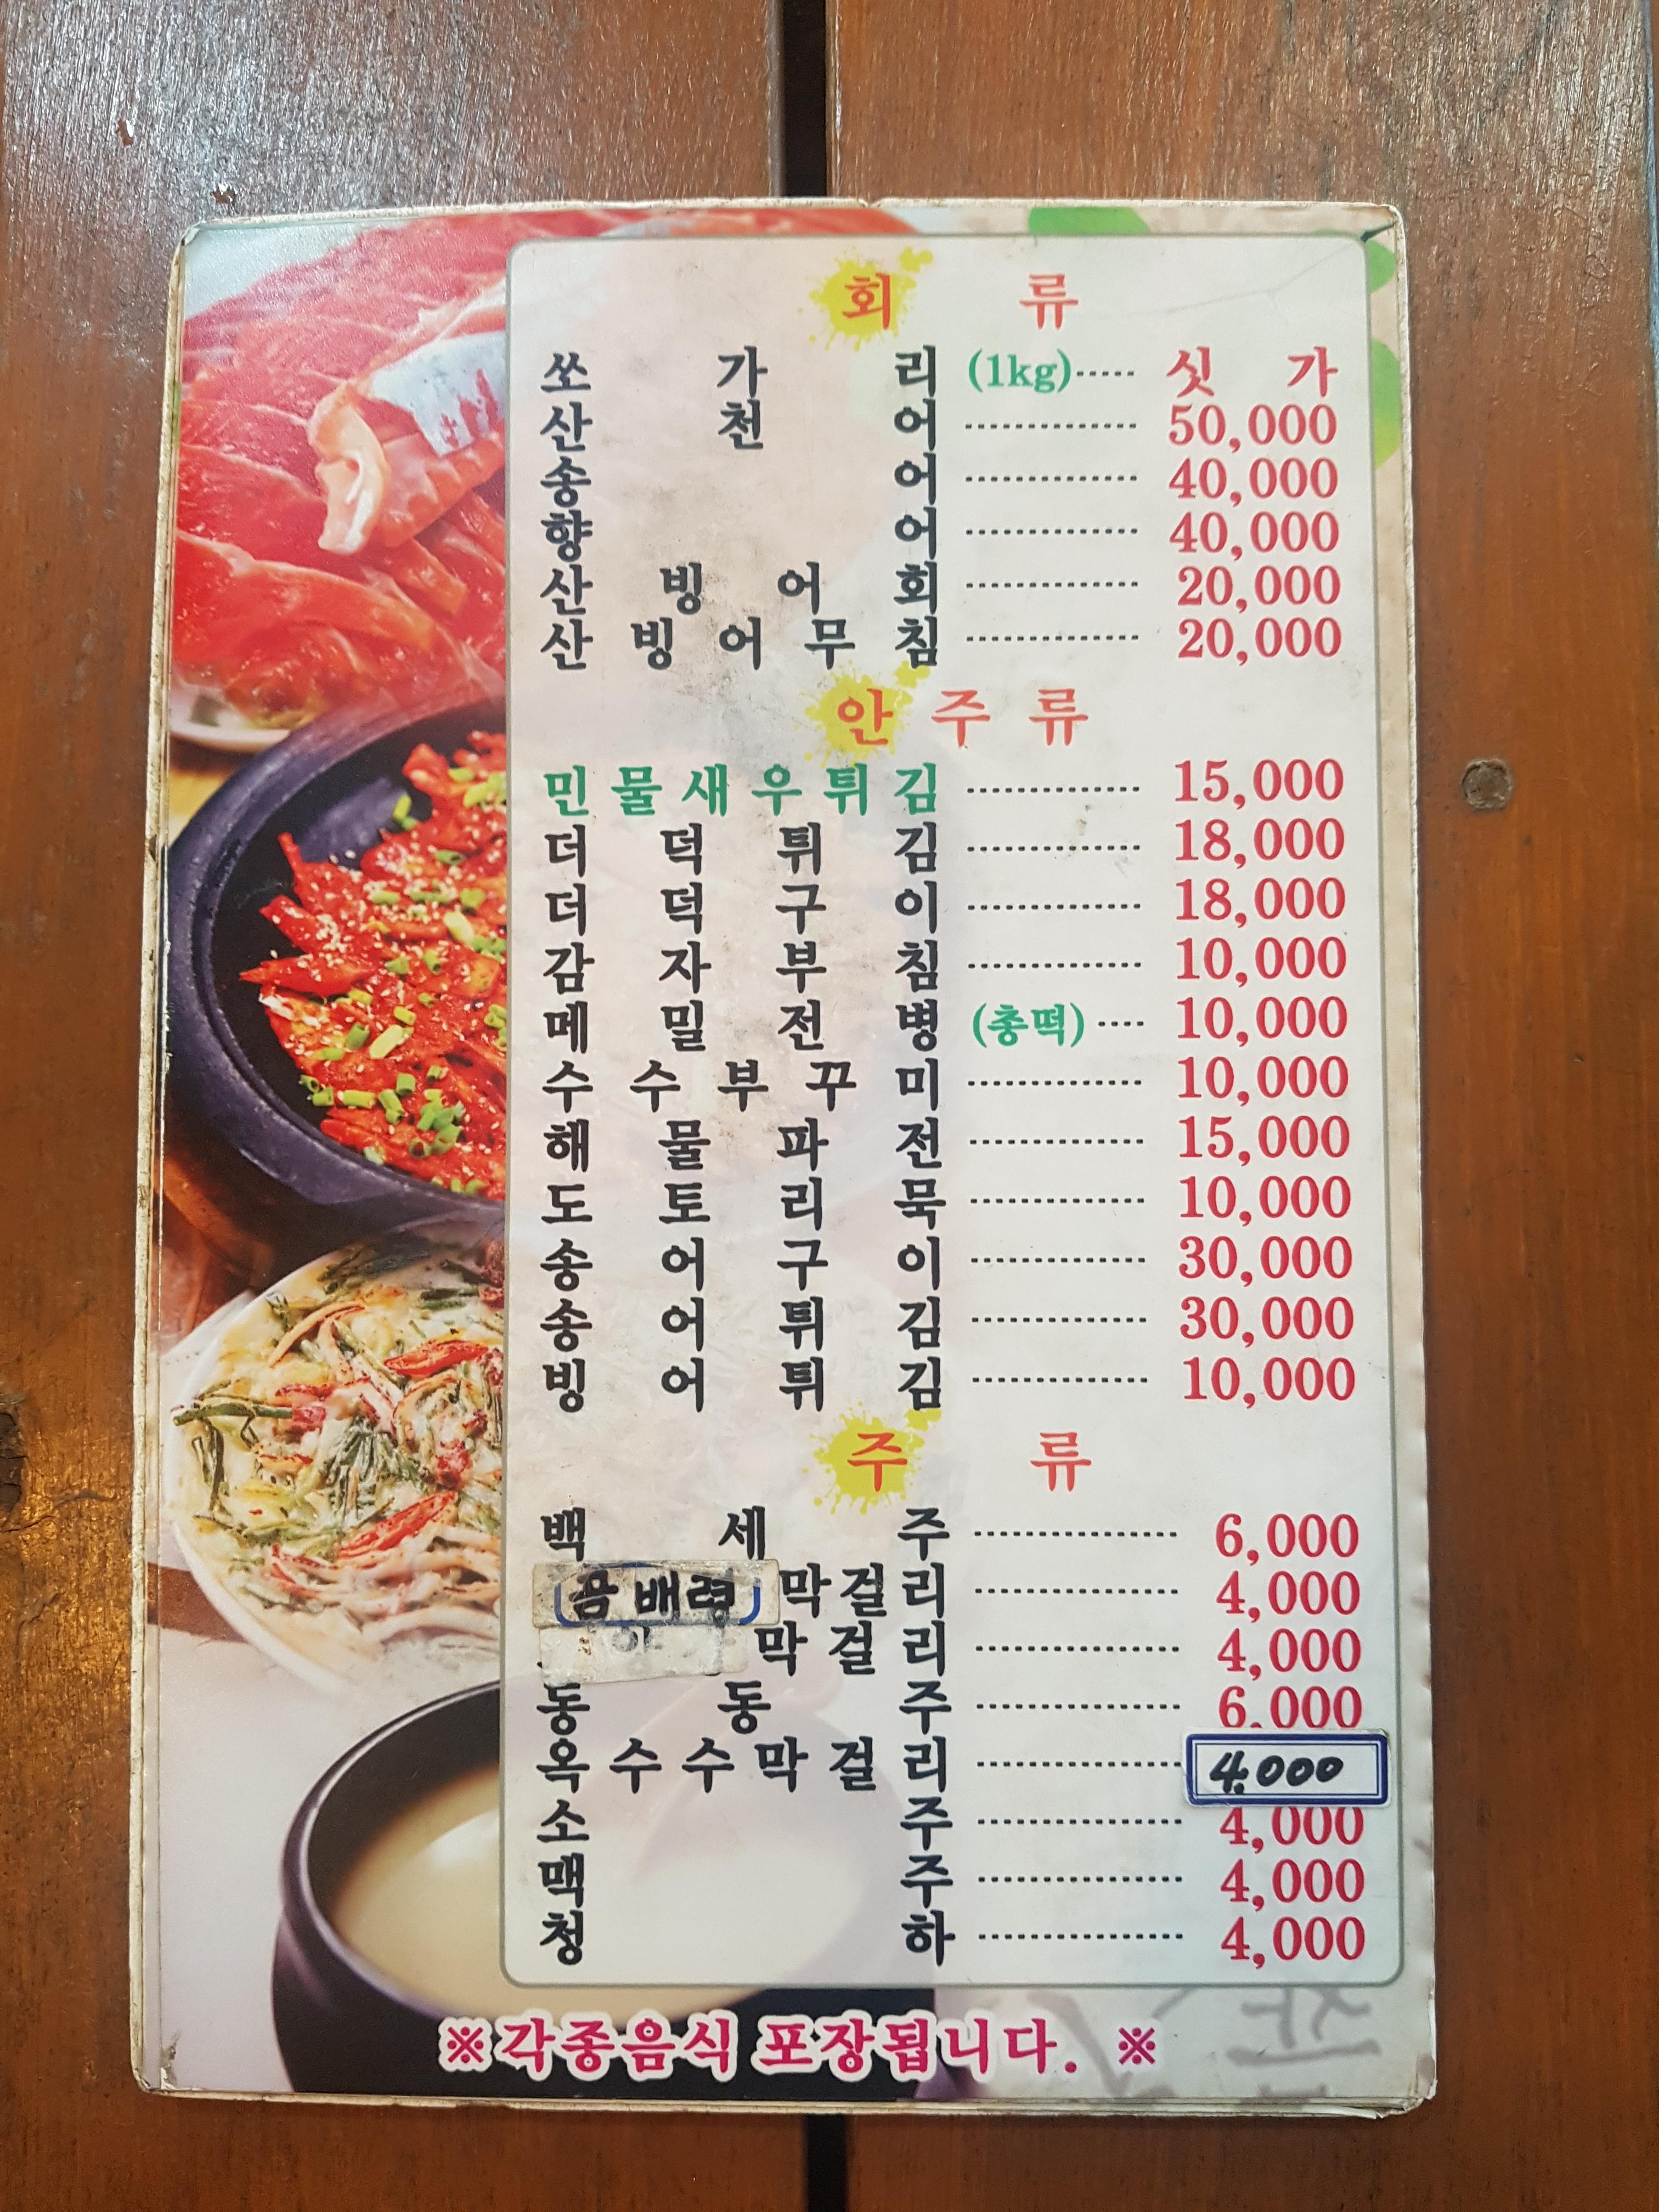 회 류
쏘가리 (1kg) 싯가
산천어 50,000
송어 40,000
향어 40,000
산빙어회 20,000
산빙어무침 20,000
안주류
민물새우튀김 15,000
더덕튀김 18,000
더덕구이 18,000
감자부침 10,000
메밀전병 (총떡) 10,000
수수부꾸미 10,000
해물파전 15,000
도토리묵 10,000
송어구이 30,000
송어튀김 30,000
빙어튀김 10,000
주 류
백세주 6,000
곰배령 막걸리 4,000
막걸리 4,000
동동주 6,000
옥수수막걸리 4,000
소주 4,000
맥주 4,000
청하 4,000
※각종음식 포장됩니다. ※